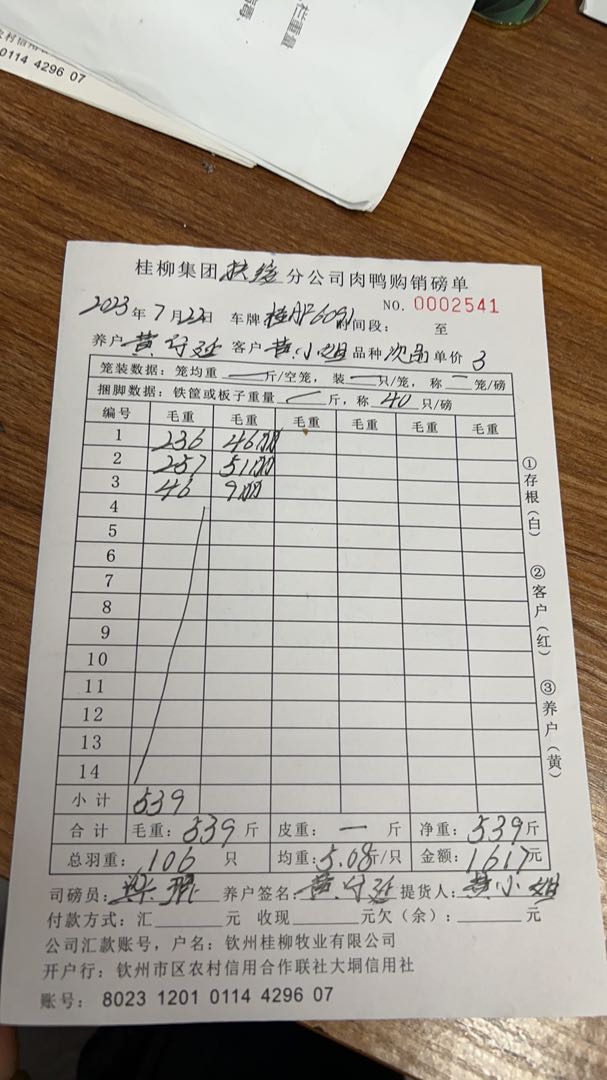 0114 4296 07
栏重量
桂柳集团扶绥分公司肉鸭购销磅单
NO. 0002541
2023年7月22日 车牌 桂AF6091 时间段: 至
养户 黄守延 客户 黄小姐 品种 次鸭 单价 3
笼装数据: 笼均重 — 斤/空笼, 装 — 只/笼, 称 — 笼/磅
捆脚数据: 铁筐或板子重量 — 斤, 称 40 只/磅
编号 毛重 毛重 毛重 毛重 毛重 毛重
1 236 46只
2 257 51只
3 46 9只
4
5
6
7
8
9
10
11
12
13
14
小计 539
合计 毛重: 539 斤 皮重: — 斤 净重: 539 斤
总羽重: 106 只 均重: 5.08 斤/只 金额: 1617 元
司磅员: 养户签名: 黄守延 提货人: 黄小姐
付款方式: 汇 元 收现 元欠(余): 元
公司汇款账号, 户名: 钦州桂柳牧业有限公司
开户行: 钦州市区农村信用合作联社大垌信用社
账号: 8023 1201 0114 4296 07
①存根(白) ②客户(红) ③养户(黄)